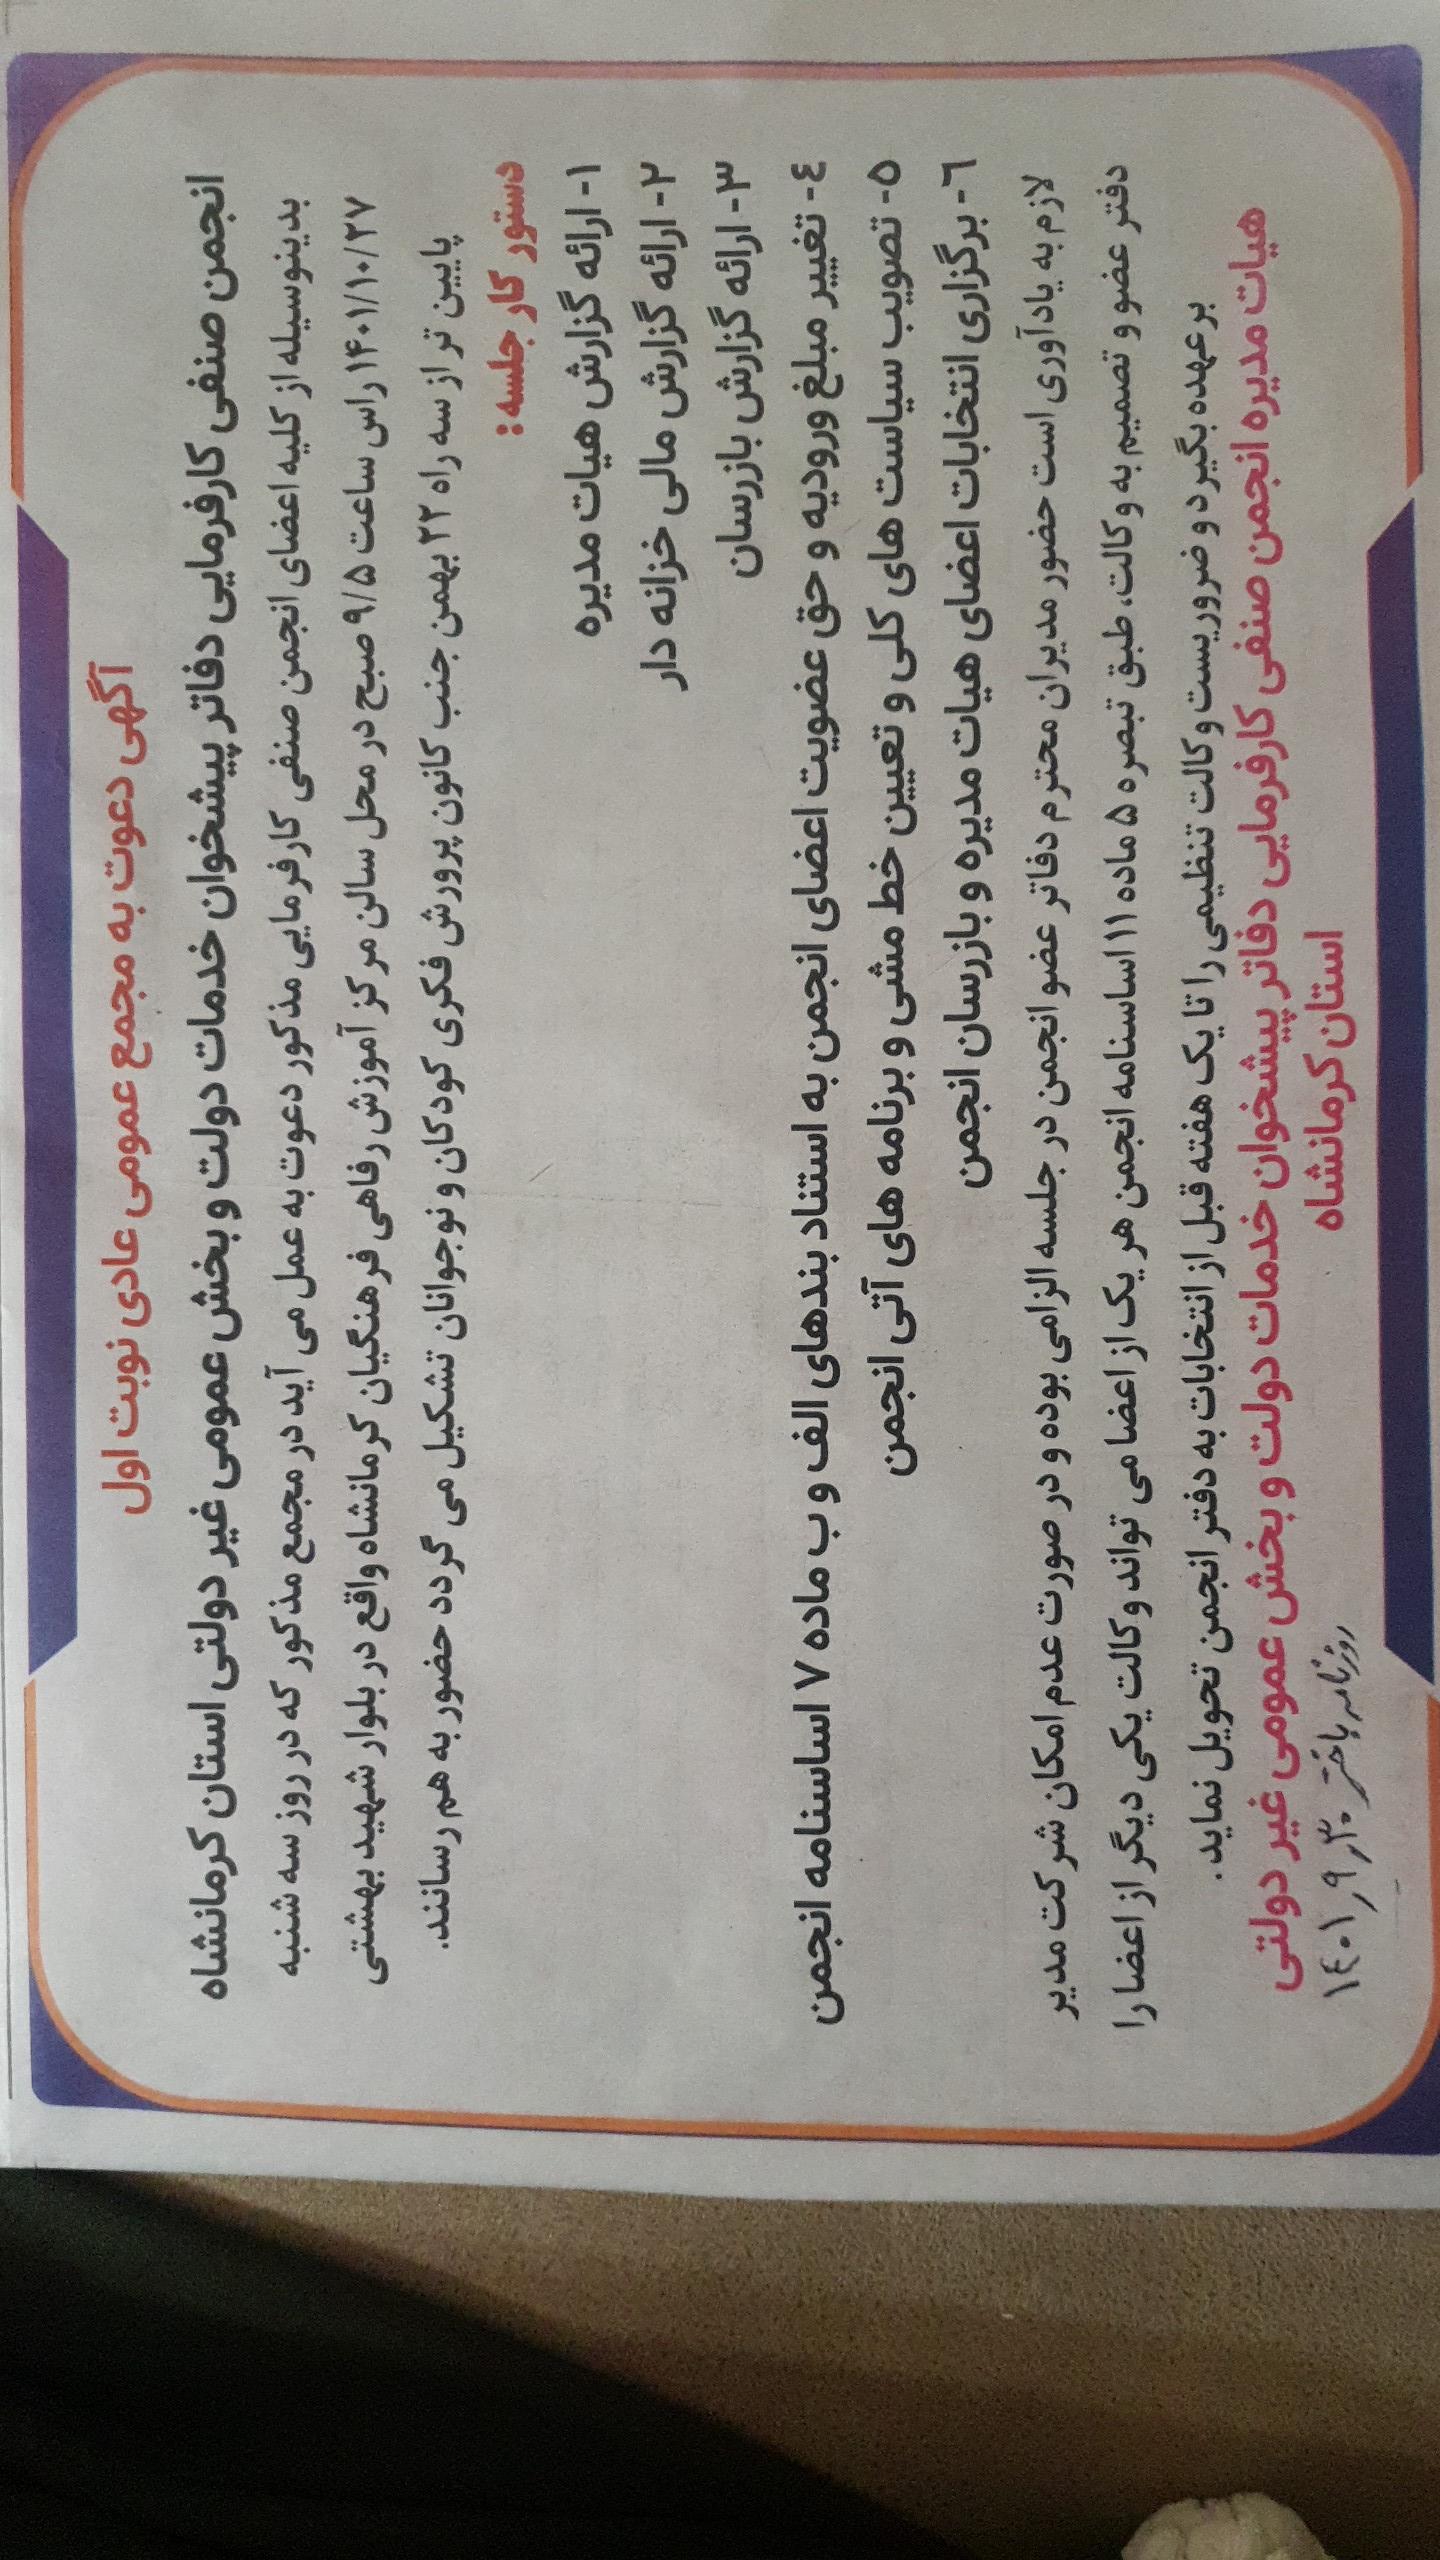 آگهی دعوت به مجمع عمومی عادی نوبت اول
انجمن صنفی کارفرمایی دفاتر پیشخوان خدمات دولت و بخش عمومی غیر دولتی استان کرمانشاه
بدینوسیله از کلیه اعضای انجمن صنفی کارفرمایی مذکور دعوت به عمل می آید در مجمع مذکور که در روز سه شنبه
۱۴۰۱/۱۰/۲۷ راس ساعت ۹/۵ صبح در محل سالن مرکز آموزش رفاهی فرهنگیان کرمانشاه واقع در بلوار شهید بهشتی
پایین تر از سه راه ۲۲ بهمن جنب کانون پرورش فکری کودکان و نوجوانان تشکیل می گردد حضور به هم رسانند.
دستور کار جلسه:
۱- ارائه گزارش هیات مدیره
۲- ارائه گزارش مالی خزانه دار
۳- ارائه گزارش بازرسان
٤- تغییر مبلغ ورودیه و حق عضویت اعضای انجمن به استناد بندهای الف و ب ماده ۷ اساسنامه انجمن
۵- تصویب سیاست های کلی و تعیین خط مشی و برنامه های آتی انجمن
٦- برگزاری انتخابات اعضای هیات مدیره و بازرسان انجمن
لازم به یادآوری است حضور مدیران محترم دفاتر عضو انجمن در جلسه الزامی بوده و در صورت عدم امکان شرکت مدیر
دفتر عضو و تصمیم به وکالت، طبق تبصره ۵ ماده ۱۱ اساسنامه انجمن هر یک از اعضا می تواند وکالت یکی دیگر از اعضا را
بر عهده بگیرد و ضروریست وکالت تنظیمی را تا یک هفته قبل از انتخابات به دفتر انجمن تحویل نماید.
هیات مدیره انجمن صنفی کارفرمایی دفاتر پیشخوان خدمات دولت و بخش عمومی غیر دولتی
استان کرمانشاه
روزنامه باختر ۱٤۰۱٫۹٫۳۰